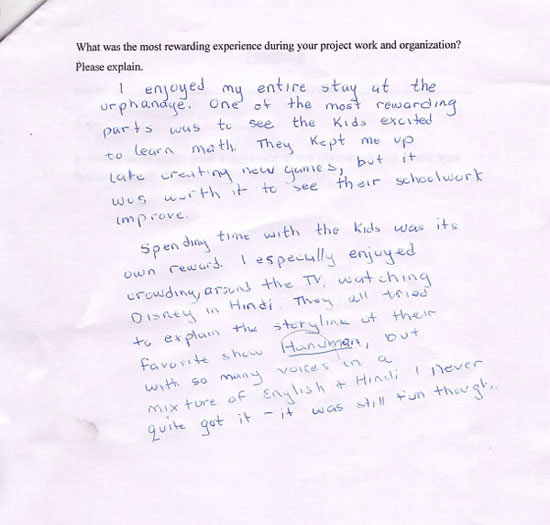 What was the most rewarding experience during your project work and organization?
Please explain.
I enjoyed my entire stay at the
orphanage. One of the most rewarding
parts was to see the kids excited
to learn math. They kept me up
late creating new games, but it
was worth it to see their schoolwork
improve.
Spending time with the kids was its
own reward. I especially enjoyed
crowding around the TV, watching
Disney in Hindi. They all tried
to explain the storyline of their
favorite show Hanuman, but
with so many voices in a
mixture of English + Hindi I never
quite got it - it was still fun though.